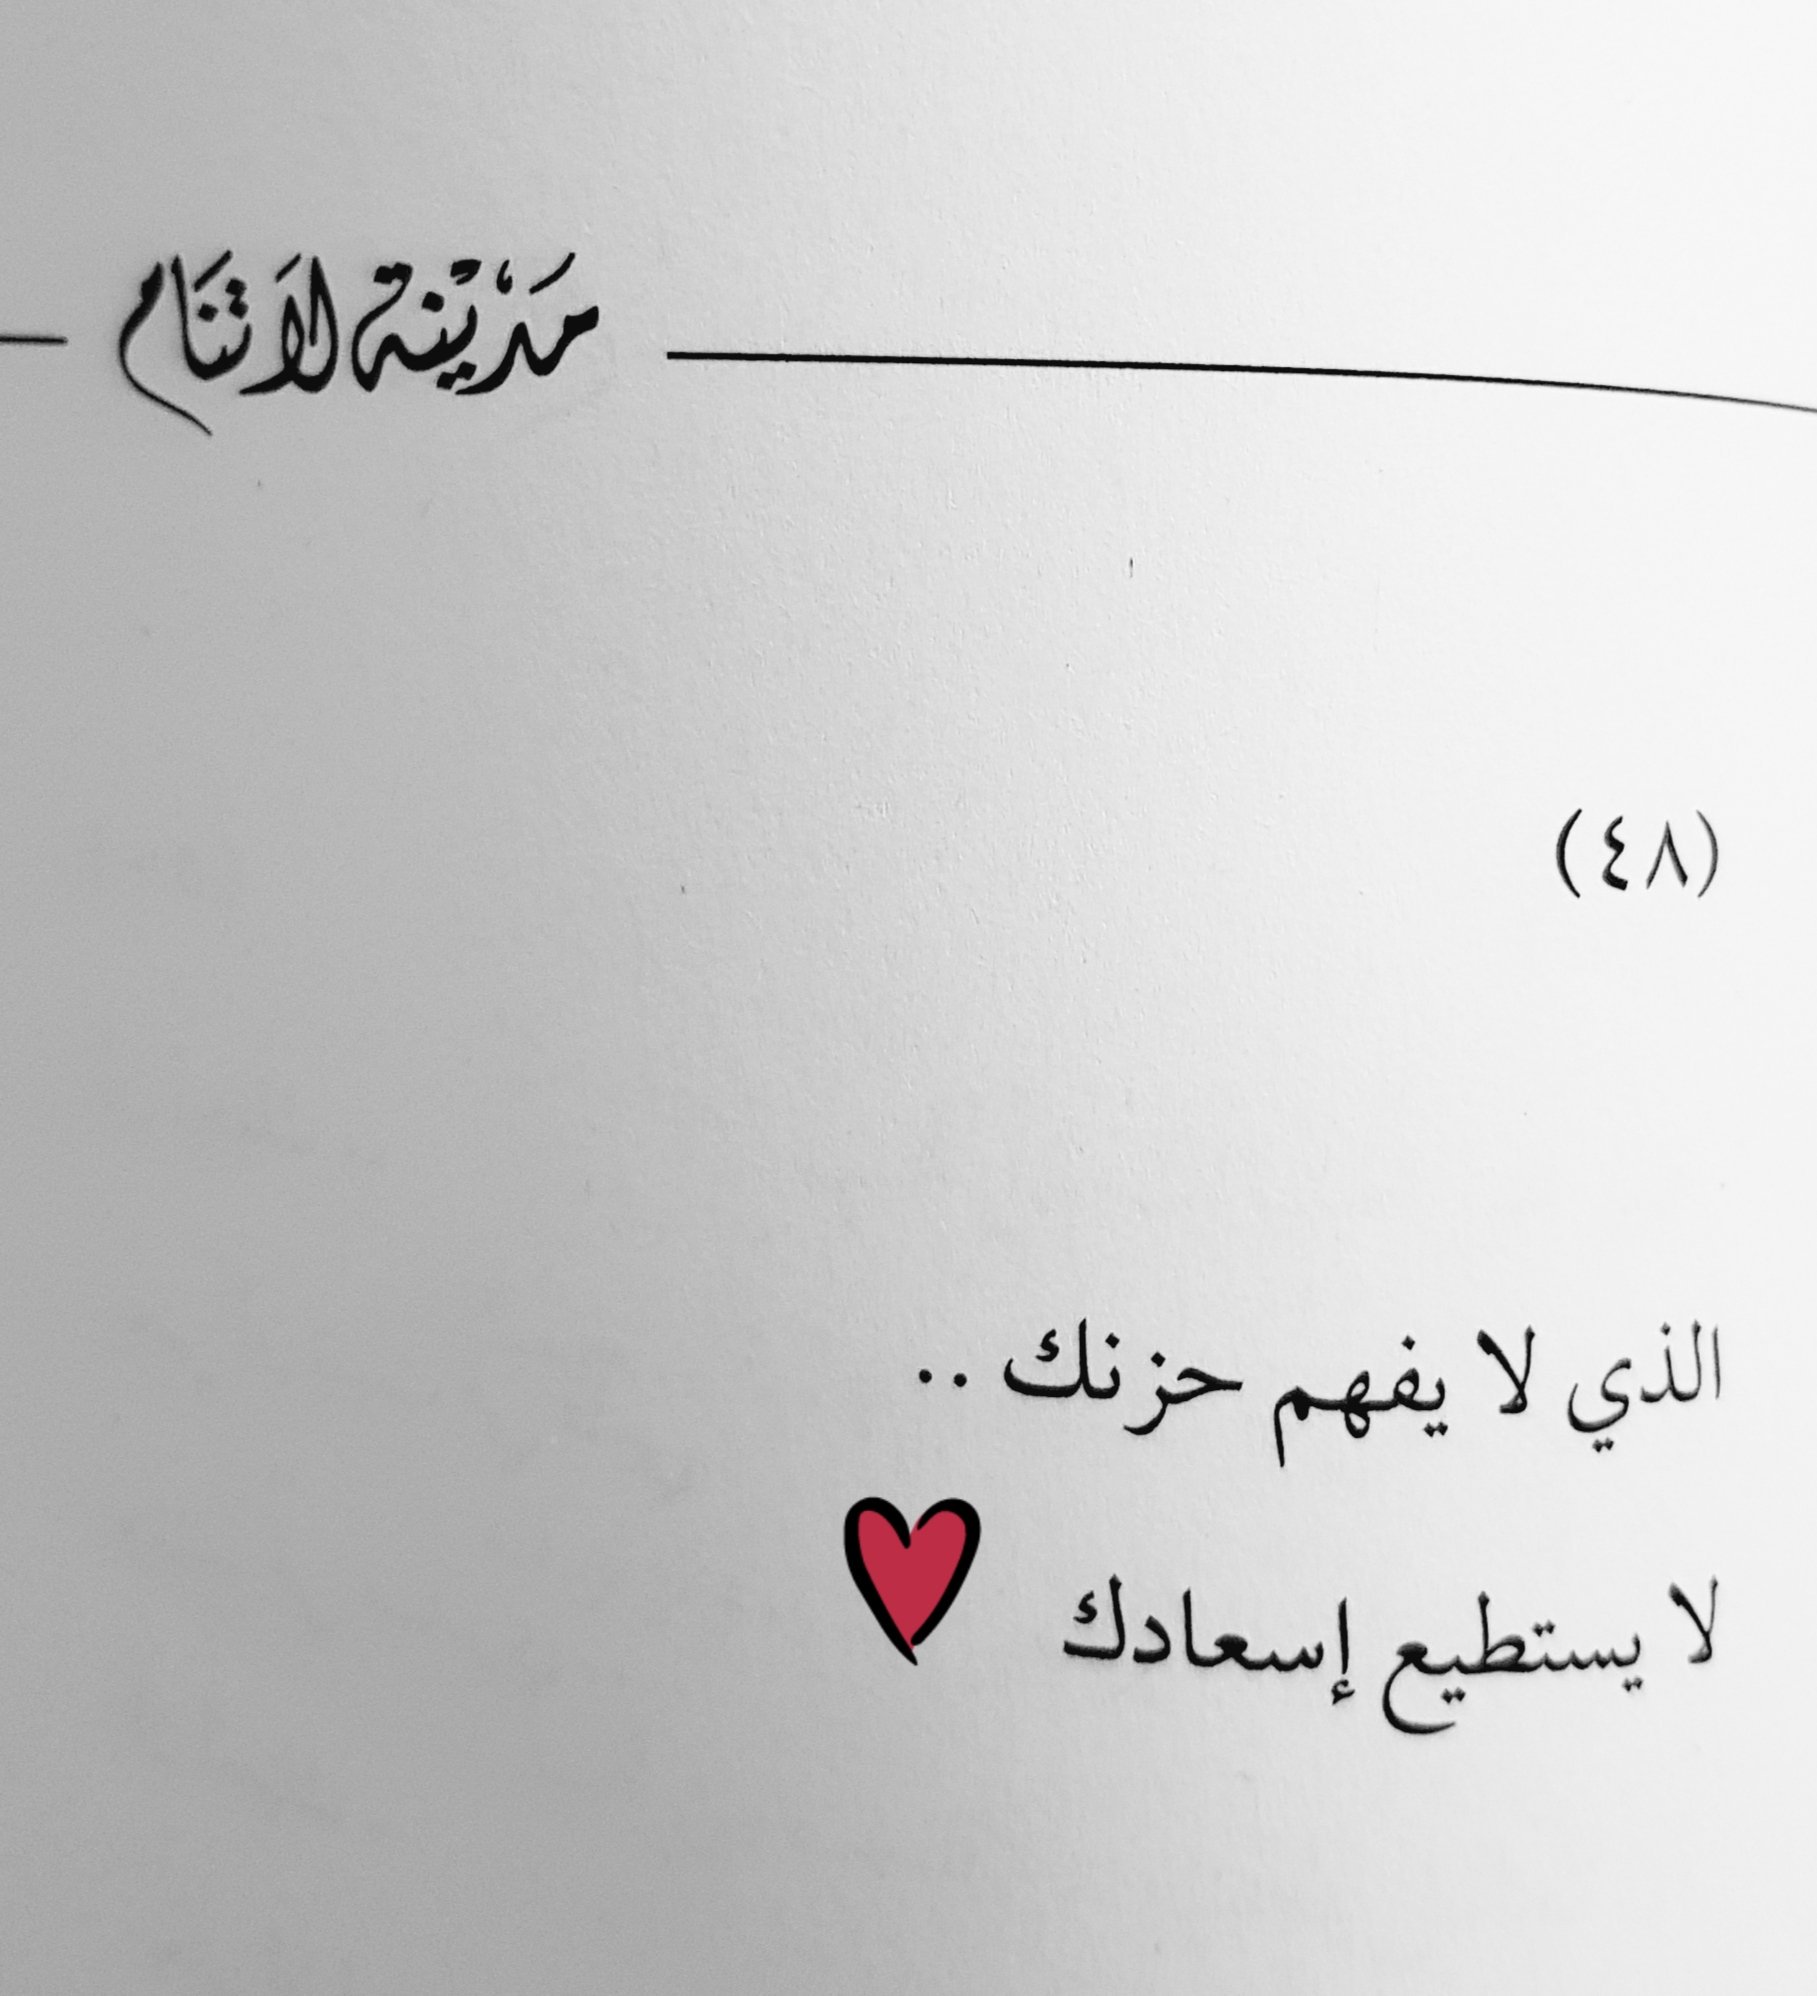 مَدْيْنة لاَ تَنَام
(٤٨)
الذي لا يفهم حزنك ..
لا يستطيع إسعادك